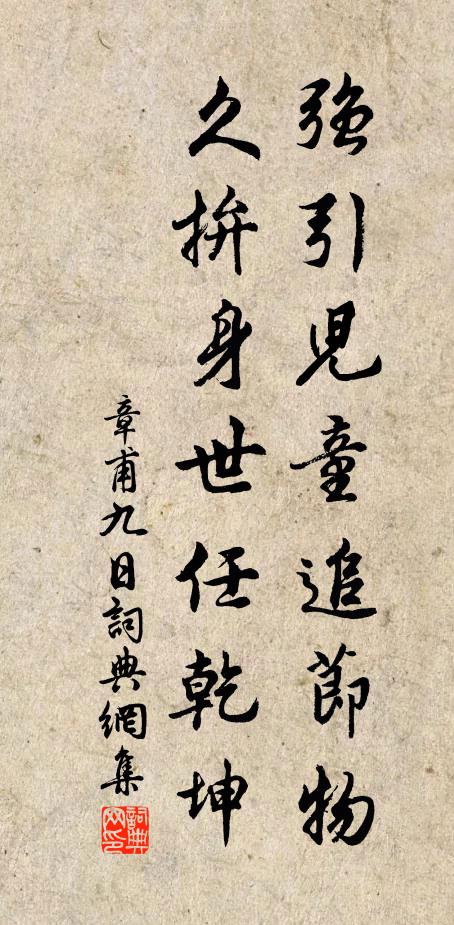 強引兒童追節物
久拚身世任乾坤
章甫九日詞典網集
詞典网印